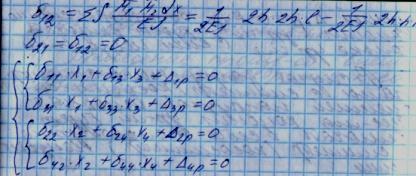 δ₁₂ = Σ∫ M₁ M₂ dx / EJ = 1/2EJ · 2h · 2h · l − 1/2EJ · 2h ·
δ₂₁ = δ₁₂ = 0
δ₁₁ · x₁ + δ₁₃ · x₃ + Δ₁ₚ = 0
δ₃₁ · x₁ + δ₃₃ · x₃ + Δ₃ₚ = 0
δ₂₂ · x₂ + δ₂₄ · x₄ + Δ₂ₚ = 0
δ₄₂ · x₂ + δ₄₄ · x₄ + Δ₄ₚ = 0